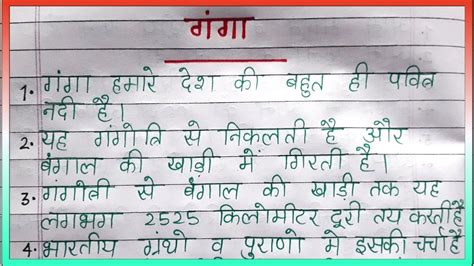 गंगा
1. गंगा हमारे देश की बहुत ही पवित्र
नदी है।
2. यह गंगोत्रि से निकलती है और
बंगाल की खाड़ी में गिरती है।
3. गंगोत्री से बंगाल की खाड़ी तक यह
लगभग 2525 किलोमीटर दूरी तय करती है
4. भारतीय ग्रंथो व पुराणो मे इसकी चर्चा है